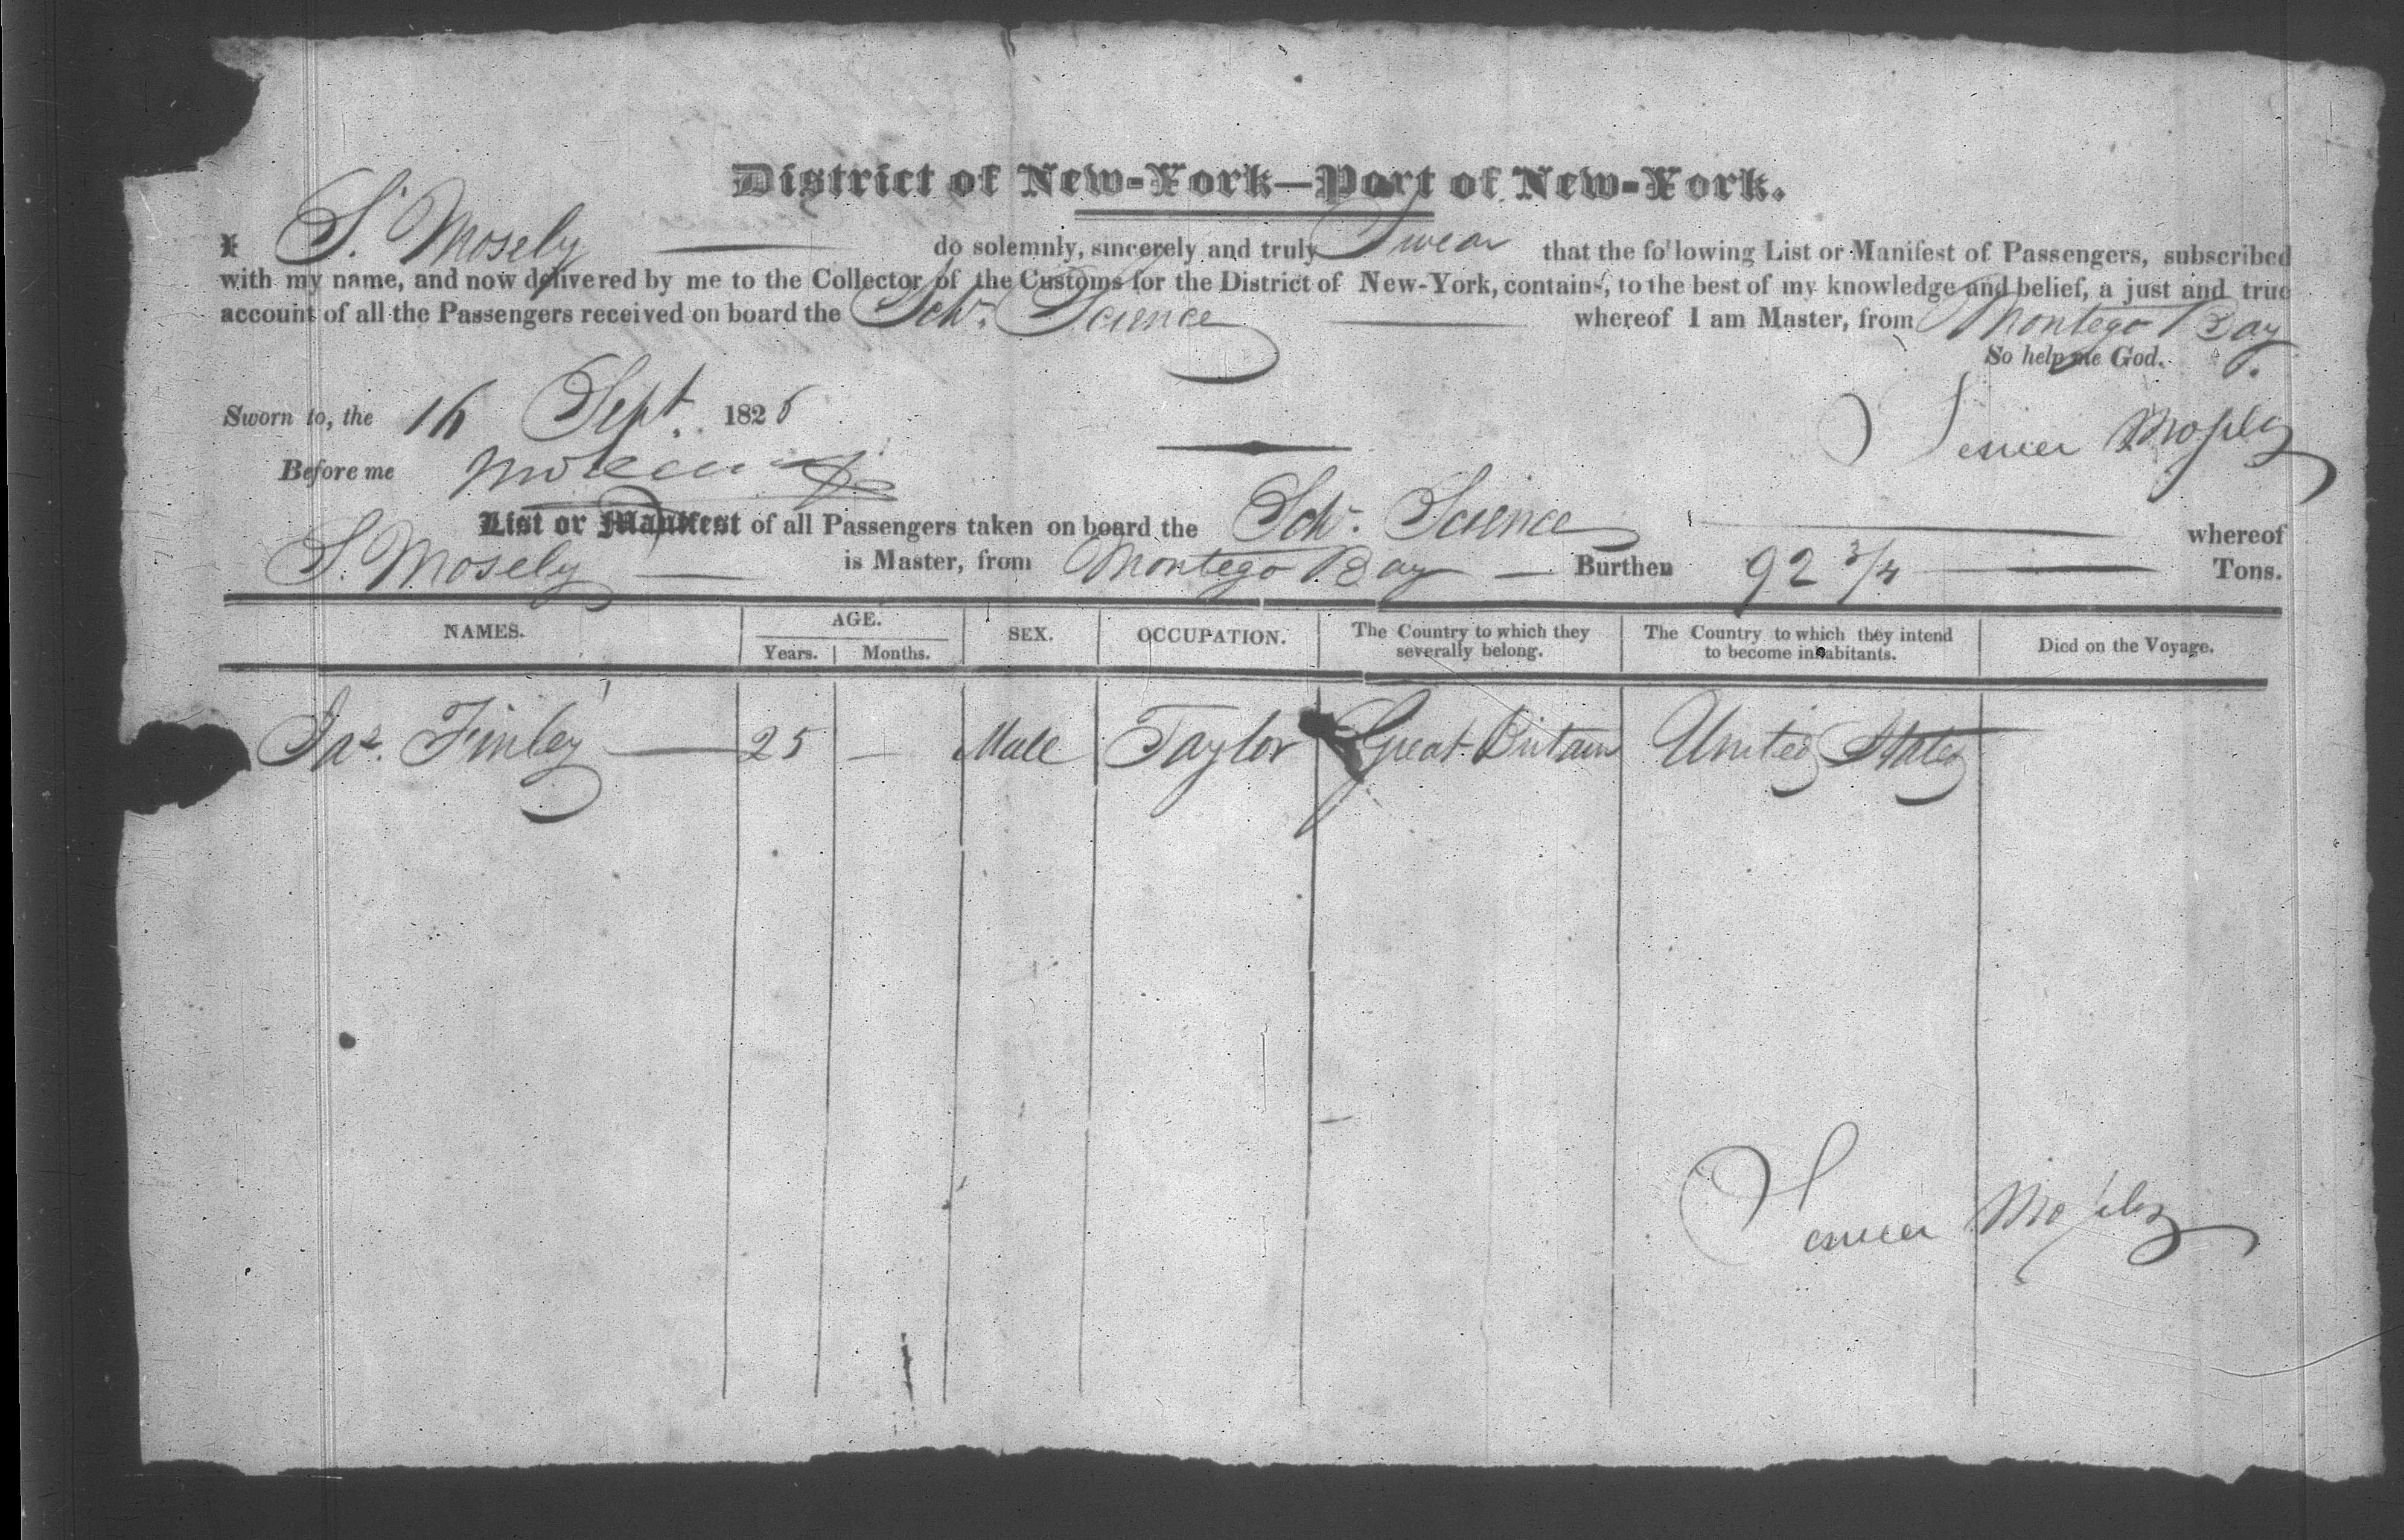 District of New-York—Port of New-York.
I S. Mosely do solemnly, sincerely and truly Swear that the following List or Manifest of Passengers, subscribed
with my name, and now delivered by me to the Collector of the Customs for the District of New-York, contains, to the best of my knowledge and belief, a just and true
account of all the Passengers received on board the Schr. Science whereof I am Master, from Montego Bay.
So help me God.
Sworn to, the 16 Sept. 1826
Mosely
Before me
List or Manifest of all Passengers taken on board the Schr. Science whereof
S. Mosely is Master, from Montego Bay Burthen 92 3/4 Tons.
NAMES. AGE. SEX. OCCUPATION. The Country to which they severally belong. The Country to which they intend to become inhabitants. Died on the Voyage.
Years. Months.
Jas. Finley 25 — Male Taylor Great Britain United States
Mosely